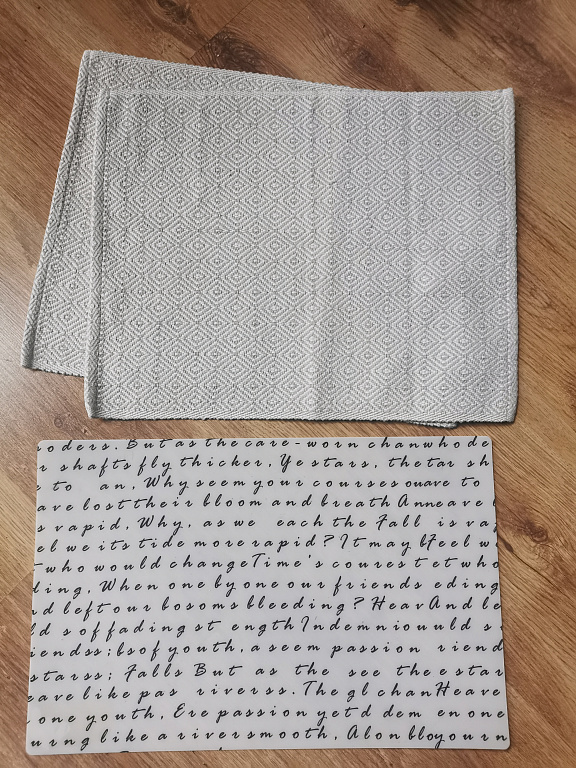 oders. But as the care-worn chan who de
r shafts fly thicker, Ye stars, the tar sh
e to an, Why seem your courses ouave to
ave lost their bloom and breath Anneave l
s vapid, Why, as we each the Fall is va
el we its tide more rapid? It may bFeel w
who would change Time's coures t et who
ding, When one by one our friends eding
nd left our bosoms bleeding? HeavAnd le
ld s of fading st ength Indemniouuld s
iends s; bs of youth, a seem passion riend
stars s; Falls But as the see the e star
eave like pas rivers s. The gl chanHeave
one youth, Ere passion yet d dem en one
urng like a river smooth, Alon bloyourn